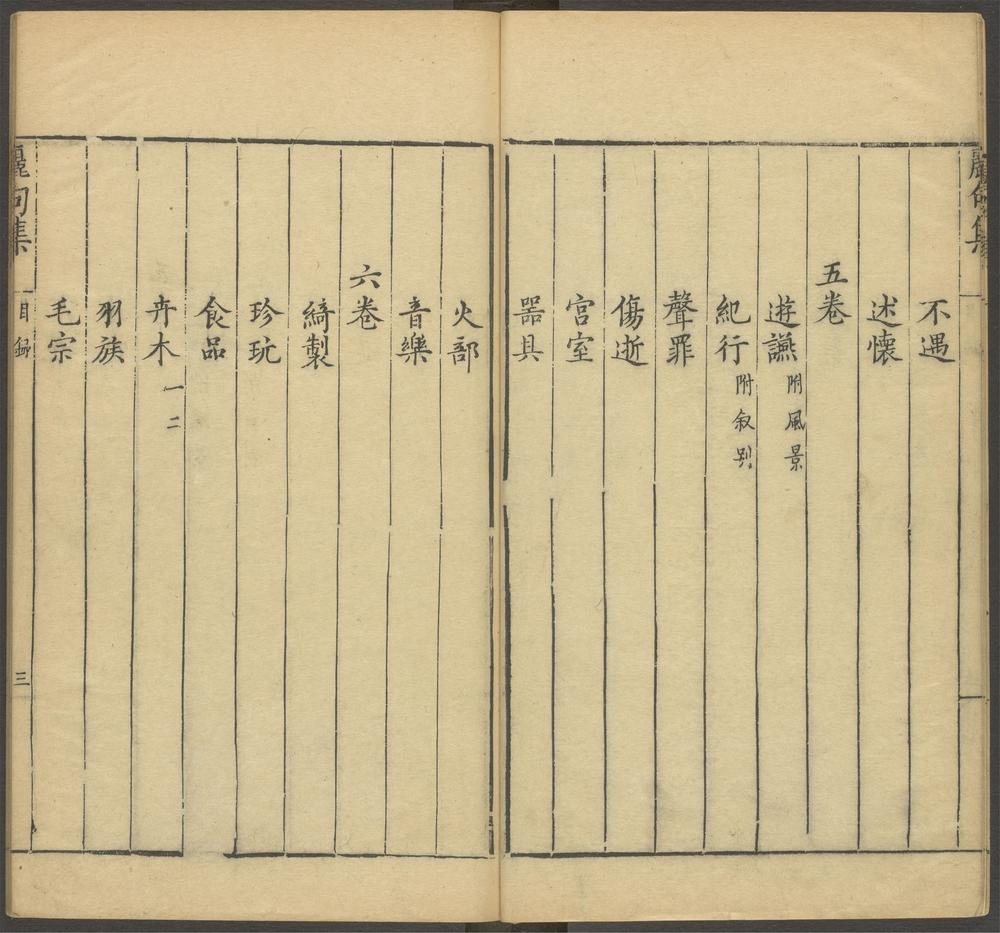 麗句集
不遇
述懷
五卷
遊讌附風景
紀行附叙別
聲罪
傷逝
宮室
器具
火部
音樂
六卷
綺製
珍玩
食品
卉木一二
羽族
毛宗
麗句集 目錄 三